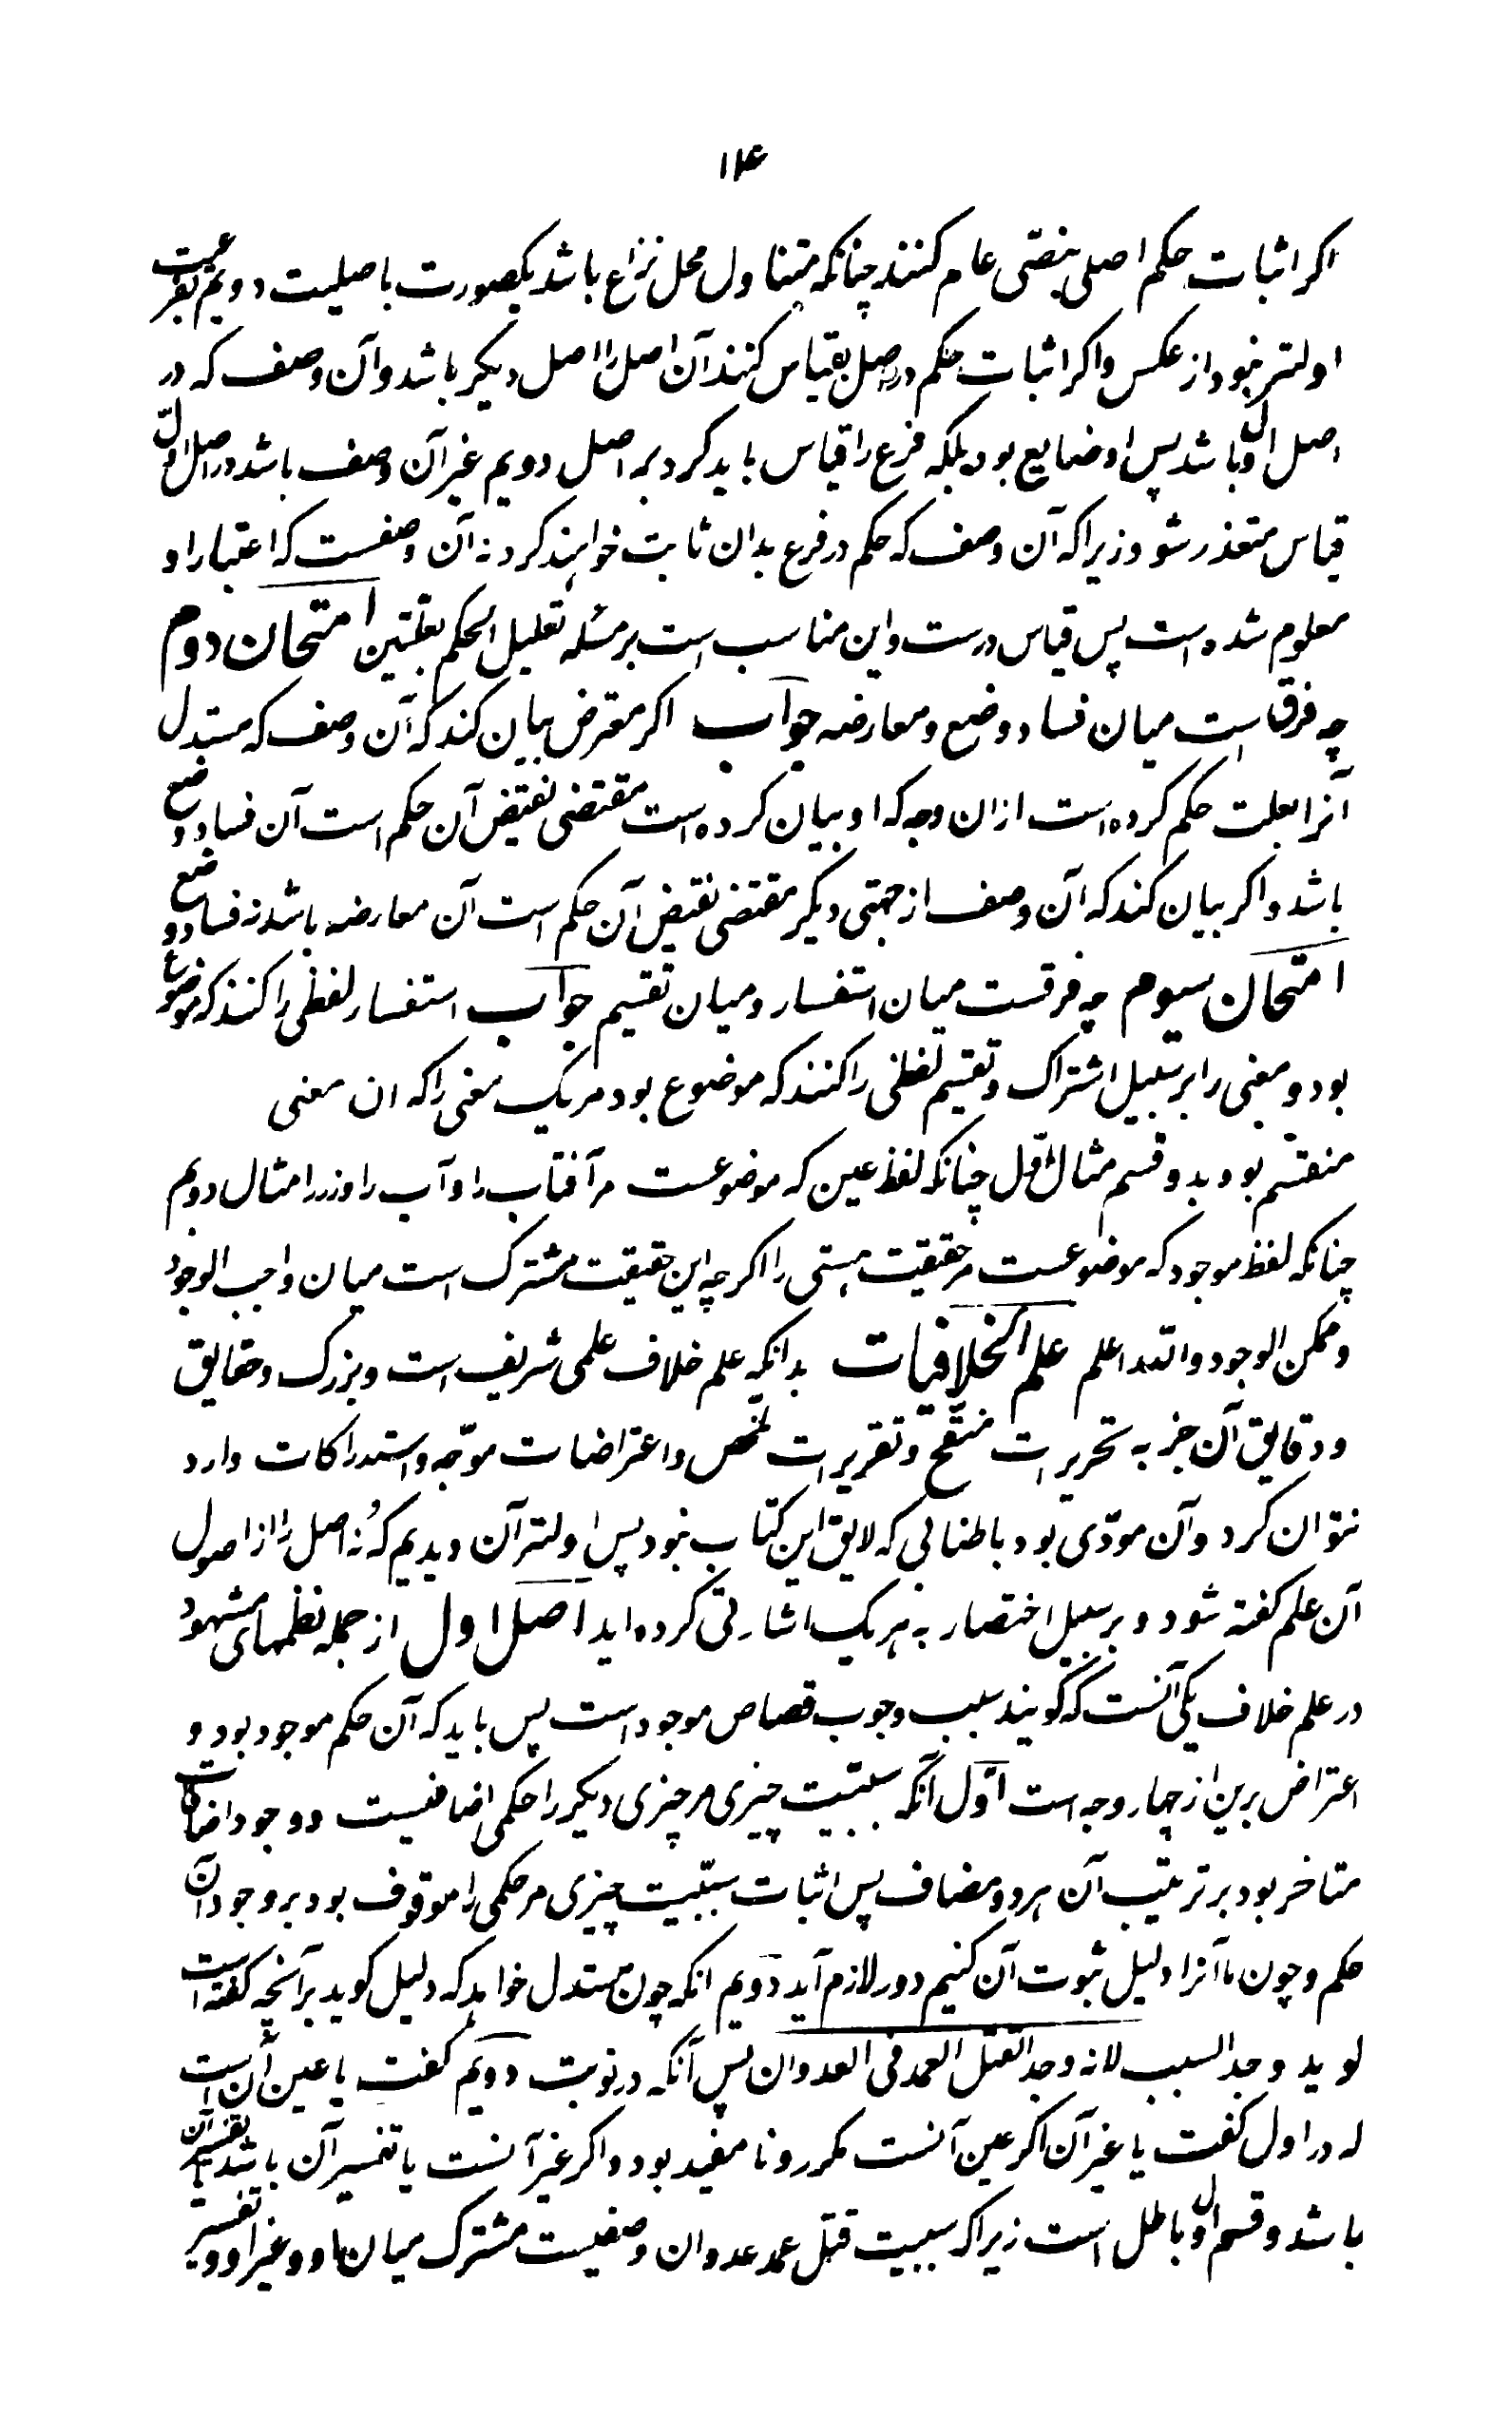 ۱۴
اکر اثبات حکم اصلی بنصّی عام کنند چنانکه متناول محل نزاع باشد یکصورت باصلیت دویم بفرعیت
اولتر نبود از عکس واکر اثبات حکم در اصل بقیاس کنند آن اصل را اصل دیکر باشد و آن وصف که در
اصل اول باشد پس او ضایع بود بلکه فرع را قیاس باید کرد بر اصل دویم غیر آن وصف باشد در اصل اوّل
قیاس متعذر شود زیرا که آن وصف که حکم در فرع بدان ثابت خواهند کرد نه آن وصفست که اعتبار او
معلوم شده است پس قیاس درست و این مناسب است بر مسئله تعلیل الحکم بعلّتین امتحان دوم
چه فرق است میان فساد وضع و معارضه جواب اکر معترض بیان کند که آن وصف که مستدل
آنرا بعلت حکم کرده است ازان وجه که او بیان کرده است مقتضی نقیض آن حکم است آن فساد وضع
باشد و اکر بیان کند که آن وصف از جهتی دیکر مقتضی نقیض آن حکم است آن معارضه باشد نه فساد وضع
امتحان سیوم چه فرقست میان استفسار و میان تقسیم جواب استفسار لفظی را کنند که موضوع
بود دو معنی را بر سبیل اشتراک و تقسیم لفظی را کنند که موضوع بود مر یک معنی را که ان معنی
منقسم بود بدو قسم مثال اوّل چنانکه لفظ عین که موضوعست مر آفتاب را و آب را و زر را مثال دویم
چنانکه لفظ موجود که موضوعست مر حقیقت هستی را اکرچه این حقیقت مشترک است میان واجب الوجود
و ممکن الوجود واللّه اعلم علم الخلافیات بدانکه علم خلاف علمی شریف است و بزرک و حقایق
و دقایق آن جز به تحریرات منقّح و تقریرات ملخص و اعتراضات موّجه و استدراکات وارد
نتوان کرد و آن مودّی بود باطنابی که لایق این کتاب نبود پس اولتر آن دیدیم که نُه اصل را از اصول
آن علم کفته شود و بر سبیل اختصار به هر یک اشارتی کرده اید اصل اول از جمله نظمهای مشهور
در علم خلاف یکی آنست که کویند سبب وجوب قصاص موجود است پس باید که آن حکم موجود بود و
اعتراض برین از چهار وجه است اوّل آنکه سببیّت چیزی مر چیزی دیکر را حکمی اضافیست و وجود اضافات
متاخر بود بر ترتیب آن هر دو مضاف پس اثبات سببّیت چیزی مر حکمی را موقوف بود بر وجود آن
حکم و چون ما آنرا دلیل ثبوت آن کنیم دور لازم آید دویم انکه چون مستدل خواهد که دلیل کوید بر آنچه کفته است
لوید وجد السبب لانه وجد القتل العمد فی العدوان پس آنکه در نوبت دویم کفت یا عین آن است
له در اول کفت یا غیر آن اکر عین آنست مکرر و نامفید بود و اکر غیر آنست یا تفسیر آن باشد یا نه تفسیر آن
باشد و قسم اول باطل است زیرا که سببیت قتل عمد عدوان وصفیست مشترک میان او و غیر او و تفسیر